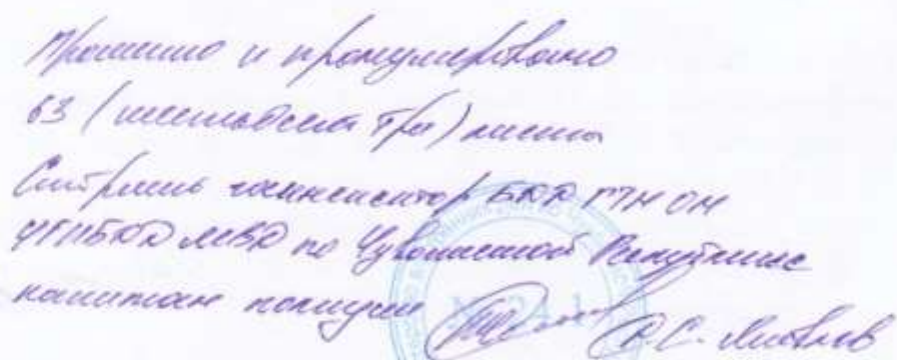 Прошито и пронумеровано
63 (шестьдесят три) листа
Старший госинспектор БДД ГТН ОН
УГИБДД МВД по Чувашской Республике
капитан полиции